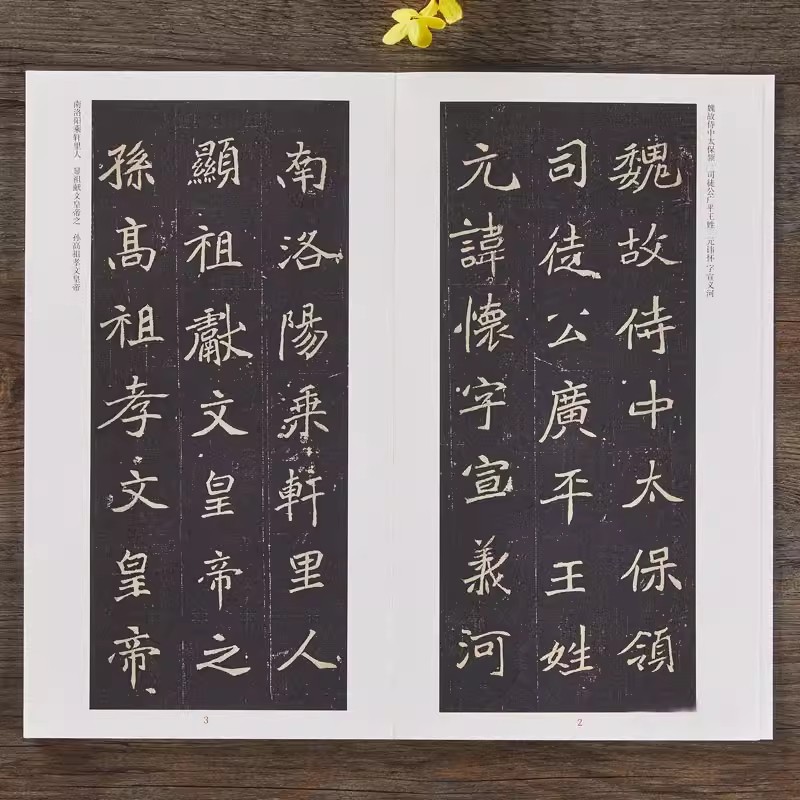 魏故侍中太保領
司徒公廣平王姓
元諱懷字宣義河
魏故侍中太保领 司徒公广平王姓 元讳怀字宣义河
2
南洛陽乘軒里人
顯祖獻文皇帝之
孫高祖孝文皇帝
南洛阳乘轩里人 显祖献文皇帝之 孙高祖孝文皇帝
3